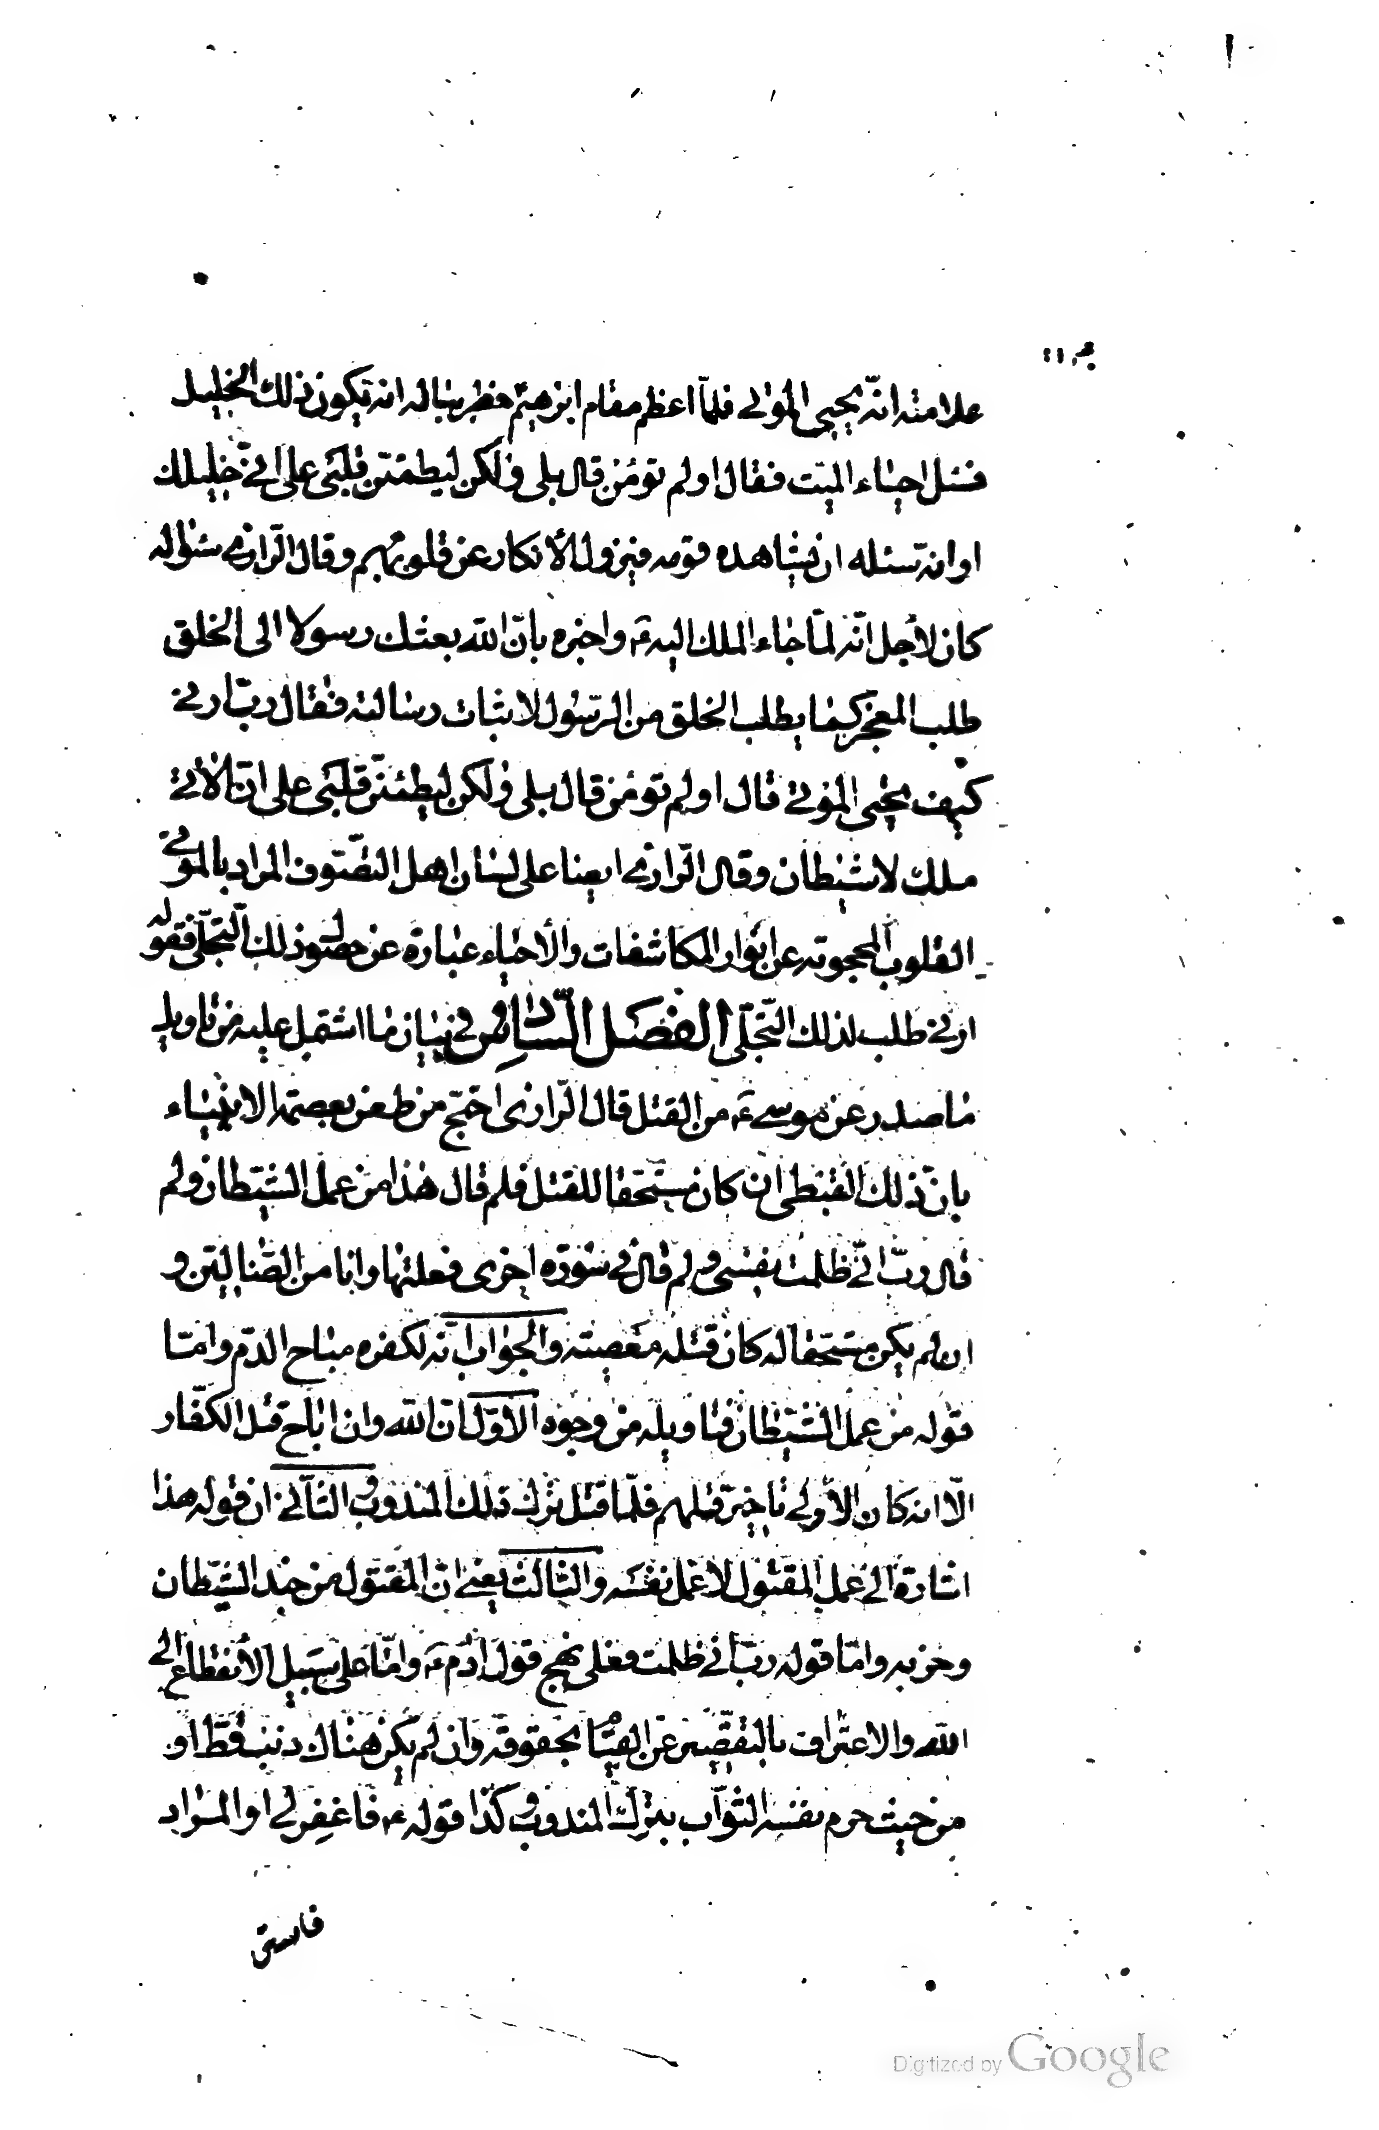 علامته انّه يحيى الموتى فلمّا اعظم مقام ابرهيم خطر بباله انه يكون ذلك الخليل
فسئل احياء الميّت فقال اولم تؤمن قال بلى ولكن ليطمئن قلبى على انّى خليلك
او انه سئله ان يشاهده قومه فيزول الأنكار عن قلوبهم وقال الرازى سؤاله
كان لأجل انّه لمّا جاء الملك اليه ع واخبره بانّ الله بعثك رسولا الى الخلق
طلب المعجز كما يطلب الخلق من الرّسول لاثبات رسالته فقال ربّ ارنى
كيف تحيى الموتى قال اولم تؤمن قال بلى ولكن ليطمئنّ قلبى على انّ الأتى
ملك لا شيطان وقال الرّازى ايضا على لسان اهل التصّوف المراد بالموتى
القلوب المحجوبة عن انوار المكاشفات والأحياء عبارة عن حصول ذلك التجلّى فقوله
ارنى طلب لذلك التّجلّى الفصل السّادس فى بيان ما اشتمل عليه من تاويل
ما صدر عن موسى ع من القتل قال الرّازى احتجّ من طعن بعصمة الانبياء
بانّ ذلك القبطى ان كان مستحقا للقتل فلم قال هذا من عمل الشّيطان ولم
قال ربّ انّى ظلمت نفسى ولم قال فى سورة اخرى فعلتها وانا من الضّالين و
ان لم يكن مستحقا له كان قتله معصية والجواب انّه لكفره مباح الدّم وامّا
قوله من عمل الشّيطان فتاويله من وجوه الاوّل انّ الله وان اباح قتل الكفّار
الّا انه كان الأولى تاخير قتلهم فلمّا قتل ترك ذلك المندوب والثّانى ان قوله هذا
اشارة الى عمل المقتول لا عمل نفسه والثالث يعنى انّ المقتول من جند الشّيطان
وحزبه وامّا قوله ربّ انّى ظلمت فعلى نهج قول ادم ع وامّا على سبيل الأنقطاع الى
الله والاعتراف بالتقصير عن القيام بحقوقه وان لم يكن هناك ذنب قطّ او
من حيث حرم نفسه الثواب بترك المندوب وكذا قوله ع فاغفر لى او المراد
فاستر
Digitized by Google